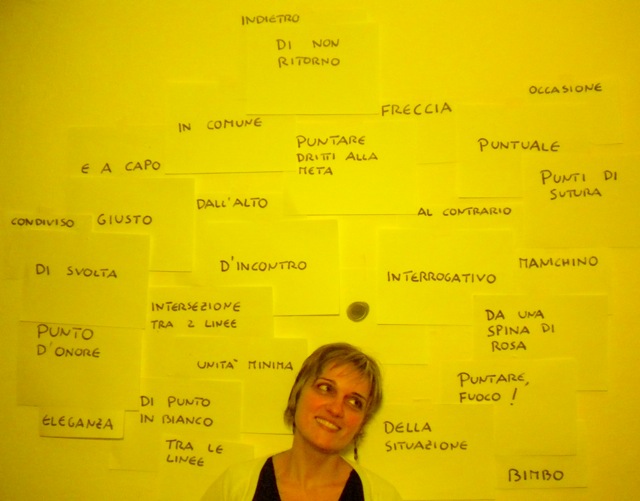 INDIETRO
DI NON
RITORNO
OCCASIONE
FRECCIA
IN COMUNE
PUNTARE
DRITTI ALLA
META
PUNTUALE
E A CAPO
PUNTI DI
SUTURA
DALL'ALTO
AL CONTRARIO
CONDIVISO
GIUSTO
DI SVOLTA
D'INCONTRO
INTERROGATIVO
MANICHINO
INTERSEZIONE
TRA 2 LINEE
DA UNA
SPINA DI
ROSA
PUNTO
D'ONORE
UNITA' MINIMA
PUNTARE,
FUOCO!
DI PUNTO
IN BIANCO
ELEGANZA
DELLA
SITUAZIONE
TRA LE
LINEE
BIMBO